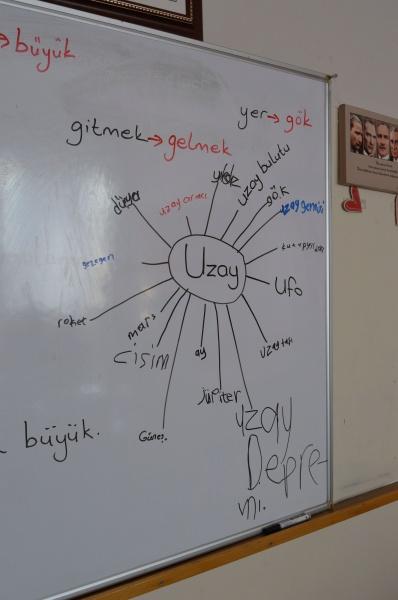 → büyük
yer → gök
gitmek → gelmek
uzay bulutu
gök
uzay aracı
uzay gemisi
Uzay
gezegen
Ufo
roket
mars
cisim
ay
uzay taşı
Jüpiter
Güneş.
uzay
Depre-
mi.
büyük.